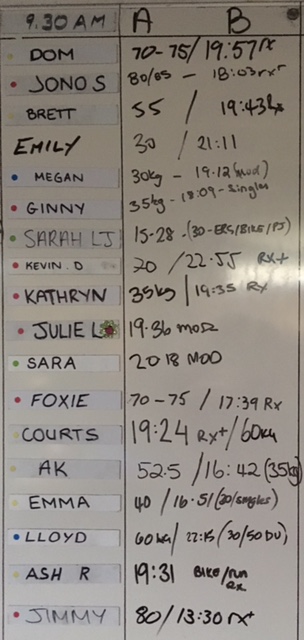 9.30 AM A B
DOM 70-75/19:57rx
JONO S 80/85 - 18:03rx+
BRETT 55 / 19:43Rx
EMILY 30 / 21:11
MEGAN 30kg - 19:12(mod)
GINNY 35kg - 18:09 - singles
SARAH LJ 15-28 - (30-ERG/BIKE/PJ)
KEVIN.D 70 /22:55 RX+
KATHRYN 35kg / 19:35 RX
JULIE L 19:36 MOD
SARA 20 18 MOD
FOXIE 70-75 / 17:39 Rx
COURTS 19:24 RX+/60kg
AK 52.5 /16:42(35kg)
EMMA 40 /16.51(20/singles)
LLOYD 60kg/ 22:15 (30/50 DU)
ASH R 19:31 BIKE/run Rx
JIMMY 80/13:30 rx+